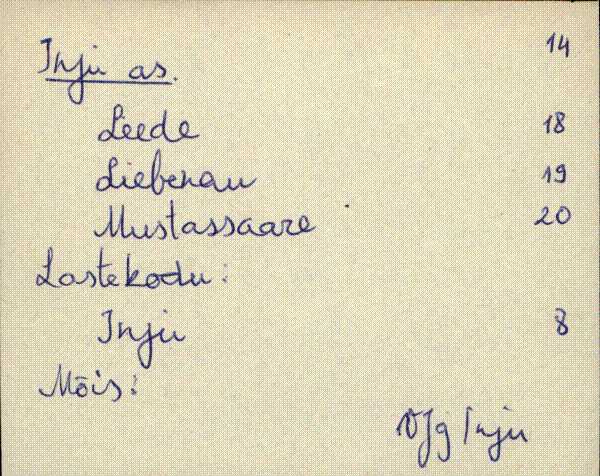 Inju as. 14
Leede 18
Liebenau 19
Mustassaare 20
Lastekodu:
Inju 8
Mõis:
VJg Inju